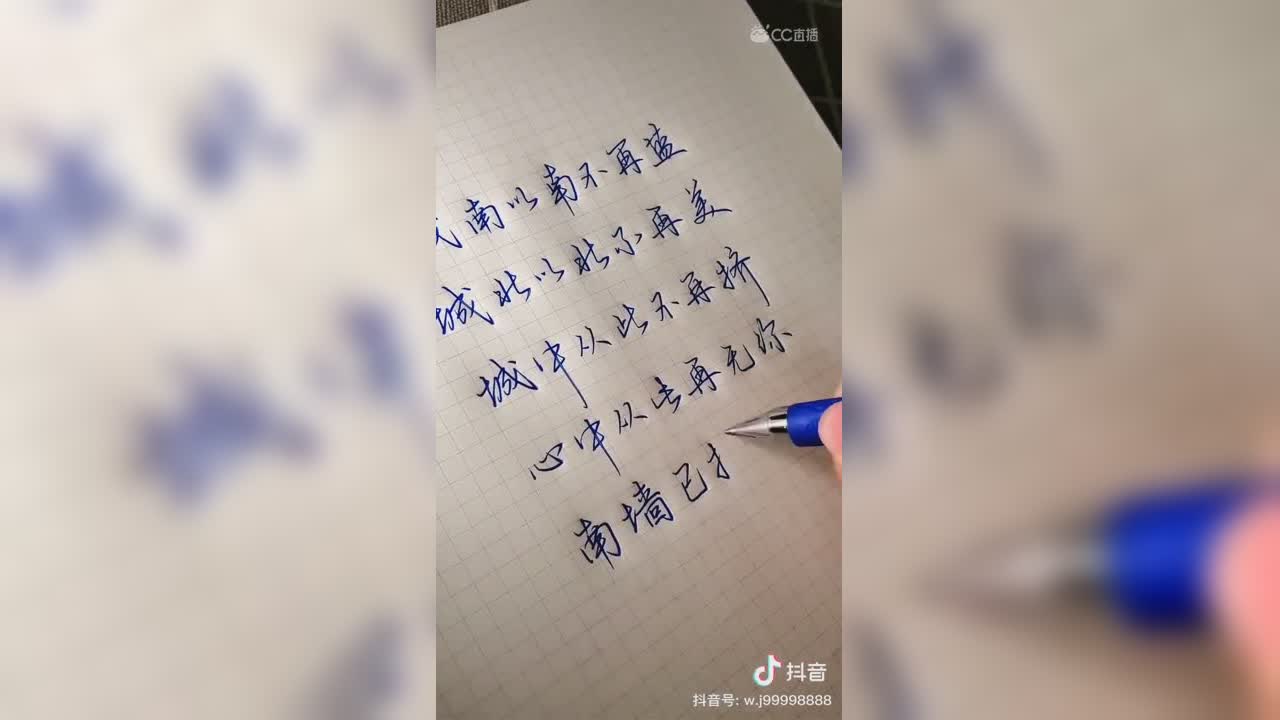 CC直播
城南以南不再蓝
城北以北不再美
城中从此不再挤
心中从此再无你
南墙已扌
抖音
抖音号: w.j99998888